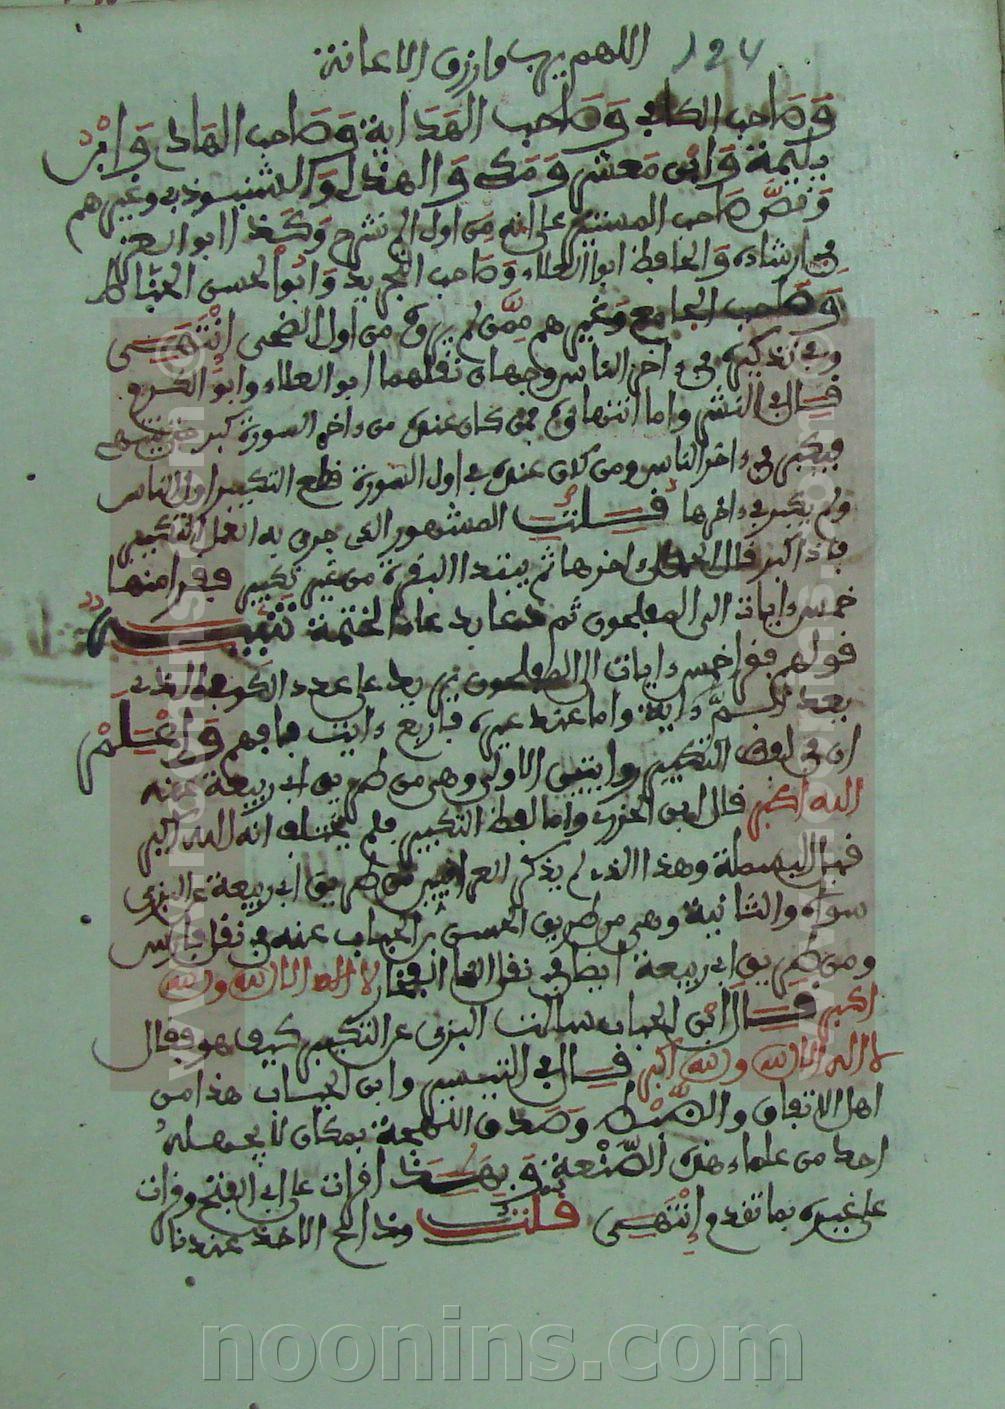 اللهم يرب وارزق الاعانة
وَصَاحب الكافي وَصَاحب الهَدَاية وَصَاحب الهَادي وَابن
بليمة وَابن مَعشر وَمَكي وَالهذلي وَالشنبوذي وغيرهم
وَنصَّ صَاحب المستنير على انه من اول الم نشرح وَكَذا ابو العز
في ارشاده وَالحافظ ابوا العلاء وَصَاحب التجريد وَابُوا لحسن الخبا
وَصَاحب الجامع وَغيرهم مِمَّن لم يرو من اول الضحى انتهى
وفي تذكيره في ءاخر الناس وجهان نقلهما ابو العلاء وابو الكرم
قال في النشر واما انتهاؤه فمن كان عنده من ءاخر السورة كبر
فيكبر في ءاخر الناس ومن كان عنده في اول السورة قطع التكبير اول الناس
ولم يكبر في ءاخرها قلت المشهور الذي جرى به العمل التكبير
فاذا كبر قال الحمد لله ءاخرها ثم يبتدا البقرة من غير تكبير فيقرا منها
خمس ءايات الى المفلحون ثم دعا بدعاء الختمة تنبيه
قولهم فيقرا خمس ءايات الى المفلحون يريد على عدد الكوفي الذي
يعد الـمّ ءاية واما عند غيره فاربع ءايات فافهم وَاعْلَمْ
ان في لفظ التكبير روايتين الاولى وهي من طريق ابي ربيعة عنه
الله اكبر قال ابن الجزري واما لفظ التكبير فلم يختلف انه الله اكبر
قبل البسملة وهذا الذي لم يذكر العراقيين من طريق ابي ربيعة عن البزي
سواه والثانية وهي من طريق الحسن بن الحباب عنه في نقل فارس
ومن طريق ابي ربيعة ايضا في نقل لا اله الا الله والله
اكبر قال ابن الحباب سالت البزي عن التكبير كيف هو فقال
لا اله الا الله والله اكبر قال في التيسير وابن الحباب هذا من
اهل الاتقان والضبط وَصَدق اللهجة بمكان لا يجهله
احد من علماء هذه الصَّنْعة وَبِهَذا قرات على ابي الفتح وقرات
على غيره بما تقدم انْتَهى قلت وذا لح الاخذ عندنا
noonins.com